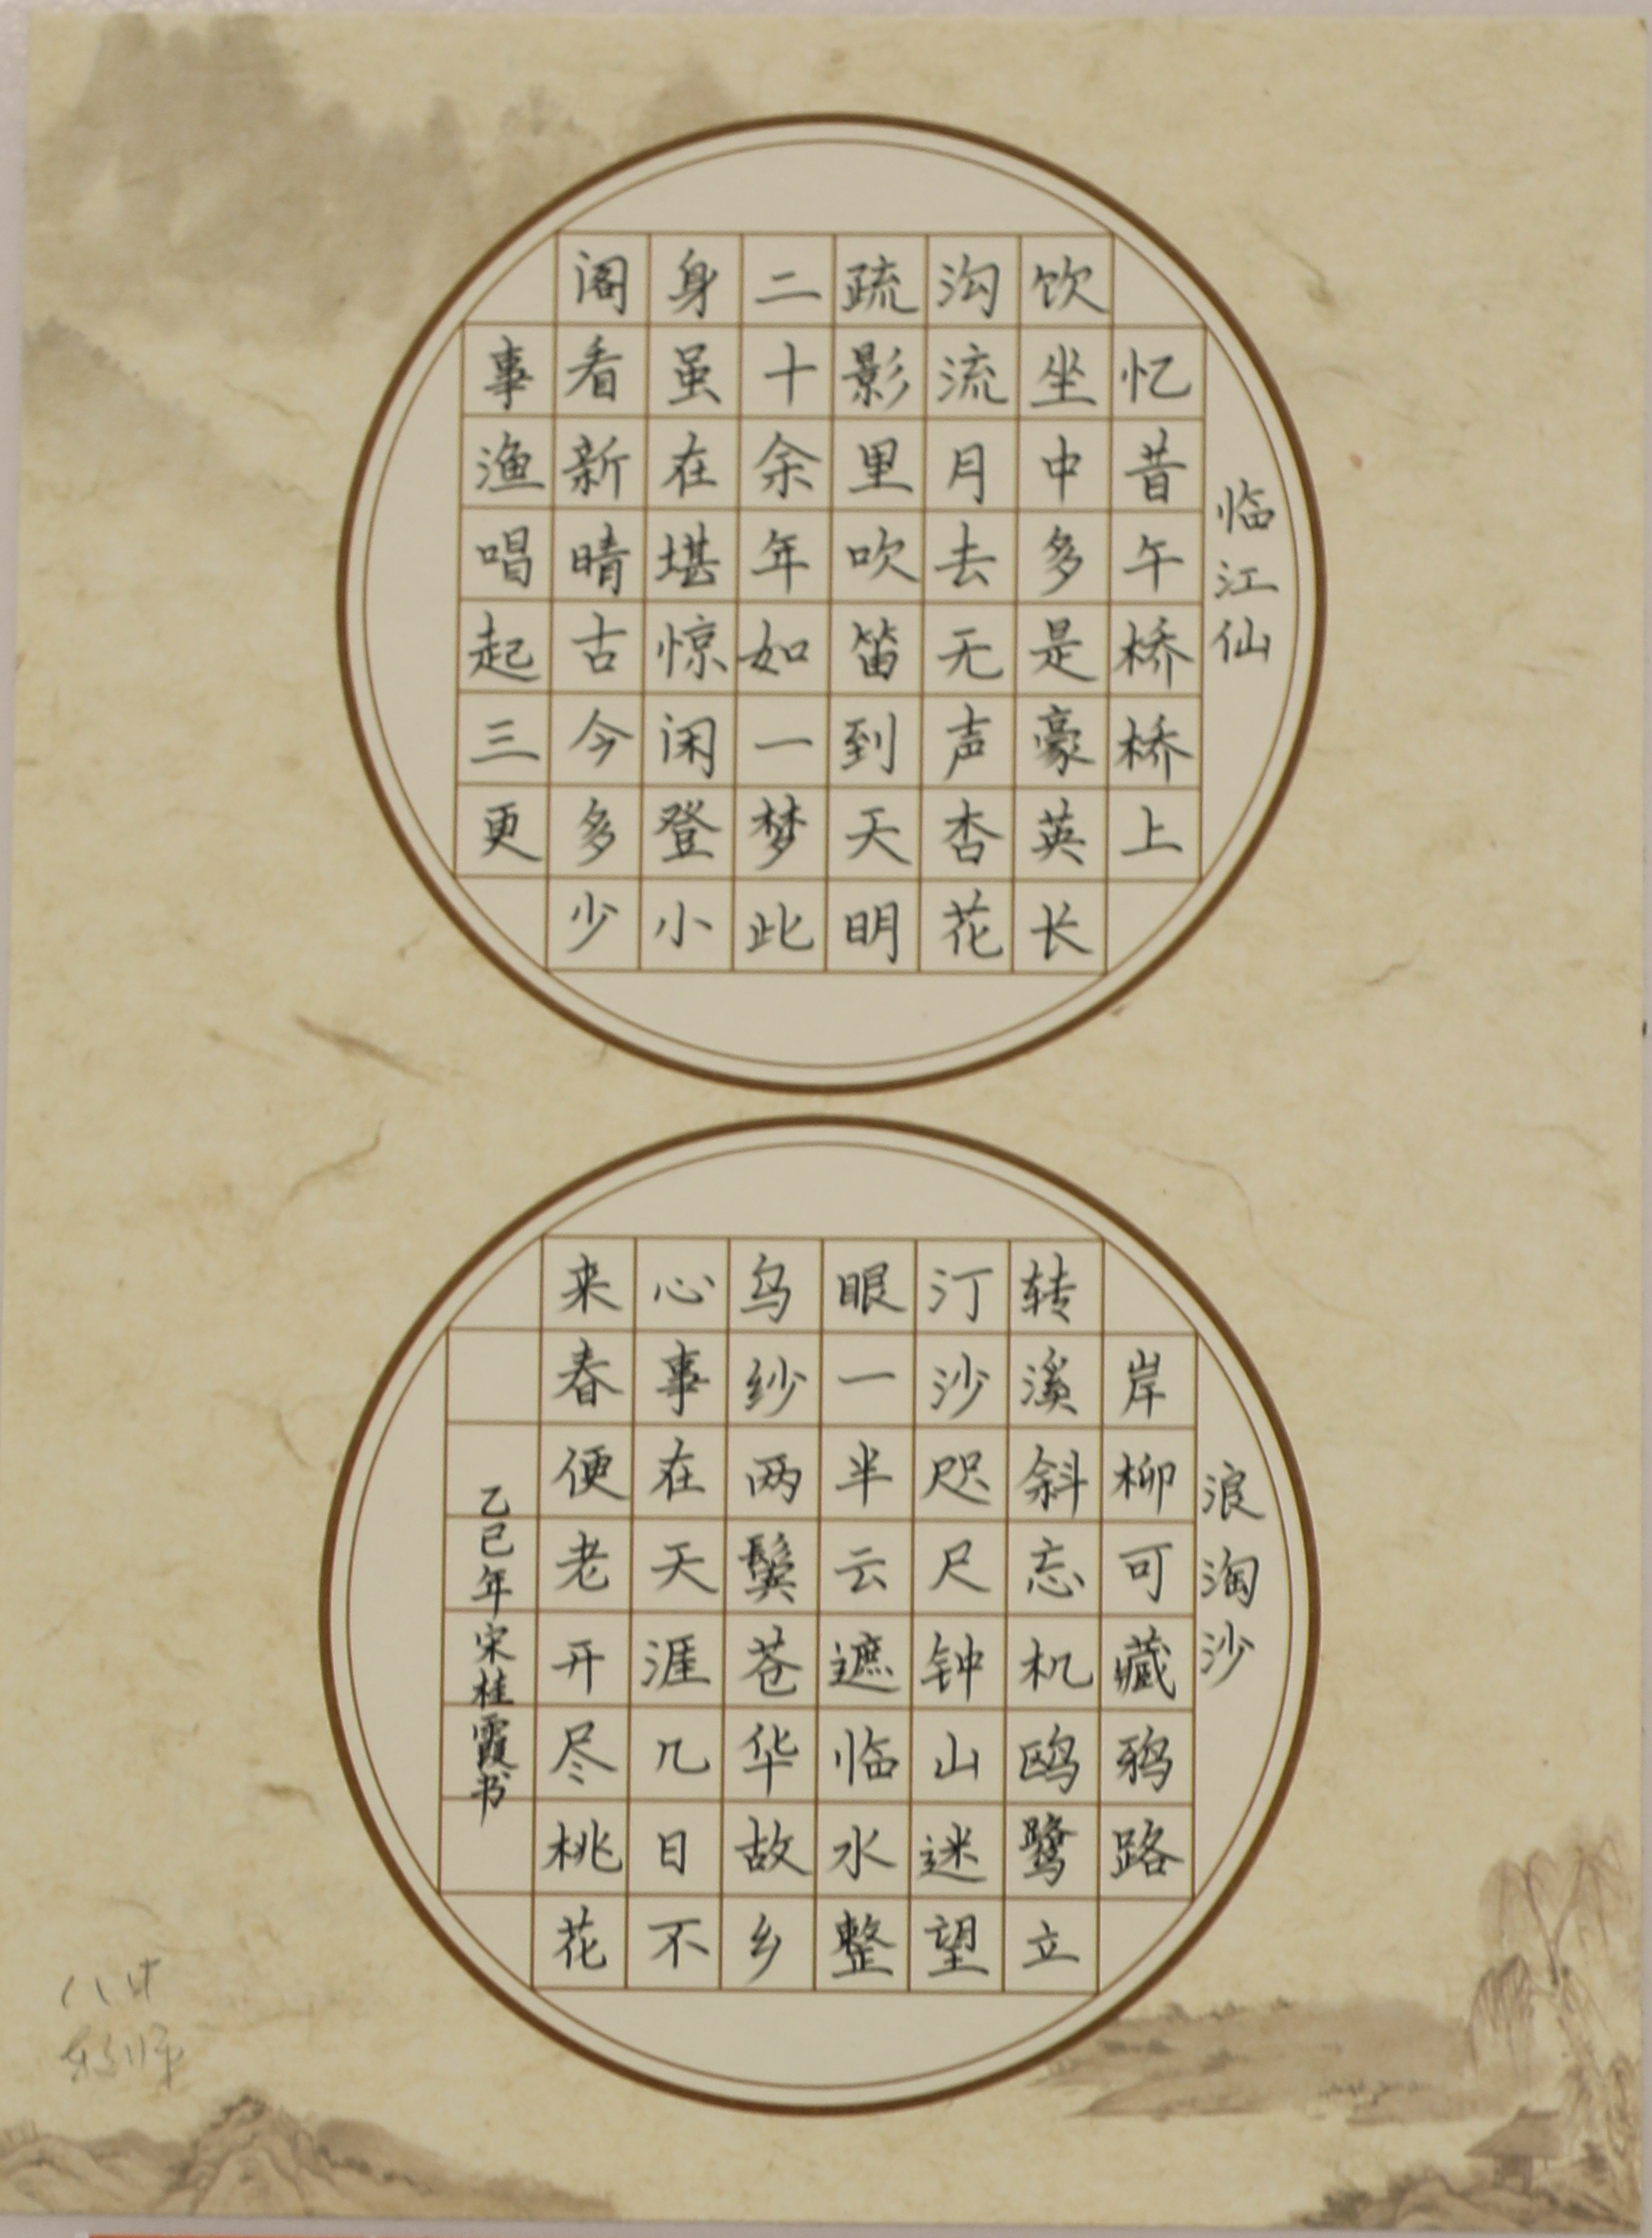 临江仙
忆昔午桥桥上
饮坐中多是豪英长
沟流月去无声杏花
疏影里吹笛到天明
二十余年如一梦此
身虽在堪惊闲登小
阁看新晴古今多少
事渔唱起三更
浪淘沙
岸柳可藏鸦路
转溪斜忘机鸥鹭立
汀沙咫尺钟山迷望
眼一半云遮临水整
乌纱两鬓苍华故乡
心事在天涯几日不
来春便老开尽桃花
乙巳年宋桂霞书